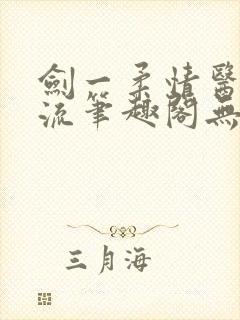 劍一柔情醫
流筆趣閣無
三月海